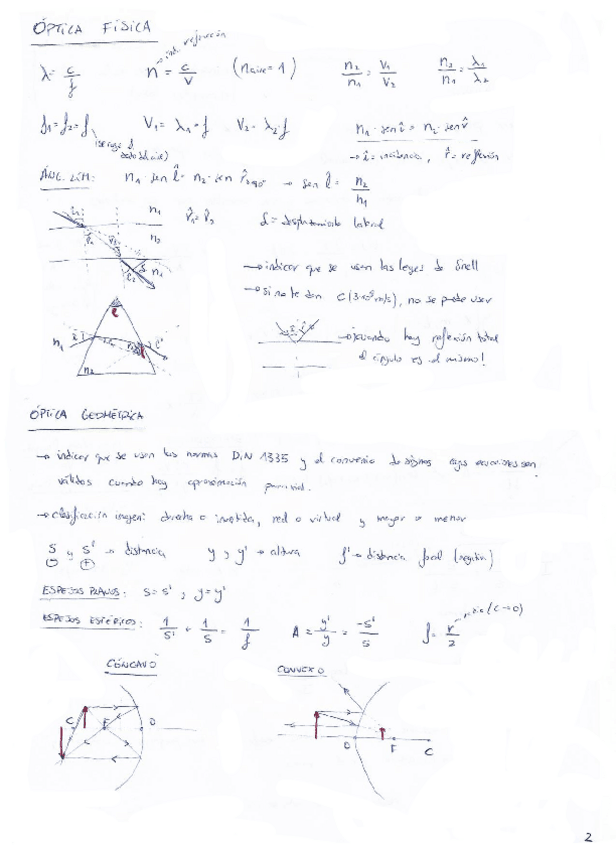 ÓPTICA FÍSICA
λ = c/f n = c/v → ind. refracción (n aire = 1) n₂/n₁ = v₁/v₂ n₂/n₁ = λ₁/λ₂
f₁ = f₂ = f V₁ = λ₁·f V₂ = λ₂·f n₁·sen î = n₂·sen r̂
→ î = incidencia, r̂ = reflexión
ÁNG. LÍM: n₁·sen l̂ = n₂·sen r̂ 90º → sen l̂ = n₂/n₁
n₁ n₂ n₁ r̂₁ = r̂₂ d = desplazamiento lateral
→ indicar que se usen las leyes de Snell
→ si no te dan c (3·10⁸ m/s), no se puede usar
n₁ n₂ → ¡cuando hay reflexión total
el ángulo es el mismo!
ÓPTICA GEOMÉTRICA
→ indicar que se usen las normas DIN 1335 y el convenio de signos cuyas ecuaciones son
válidas cuando hay aproximación paraxial.
→ clasificación imagen: directa o invertida, real o virtual y mayor o menor
s y s' → distancia y, y' → altura f' → distancia focal (negativa)
⊖ ⊕
ESPEJOS PLANOS: s = s' ; y = y'
ESPEJOS ESFÉRICOS: 1/s' + 1/s = 1/f A = y'/y = -s'/s f = r/2 → radio (C→O)
CÓNCAVO CONVEXO
C F O
O F C
2